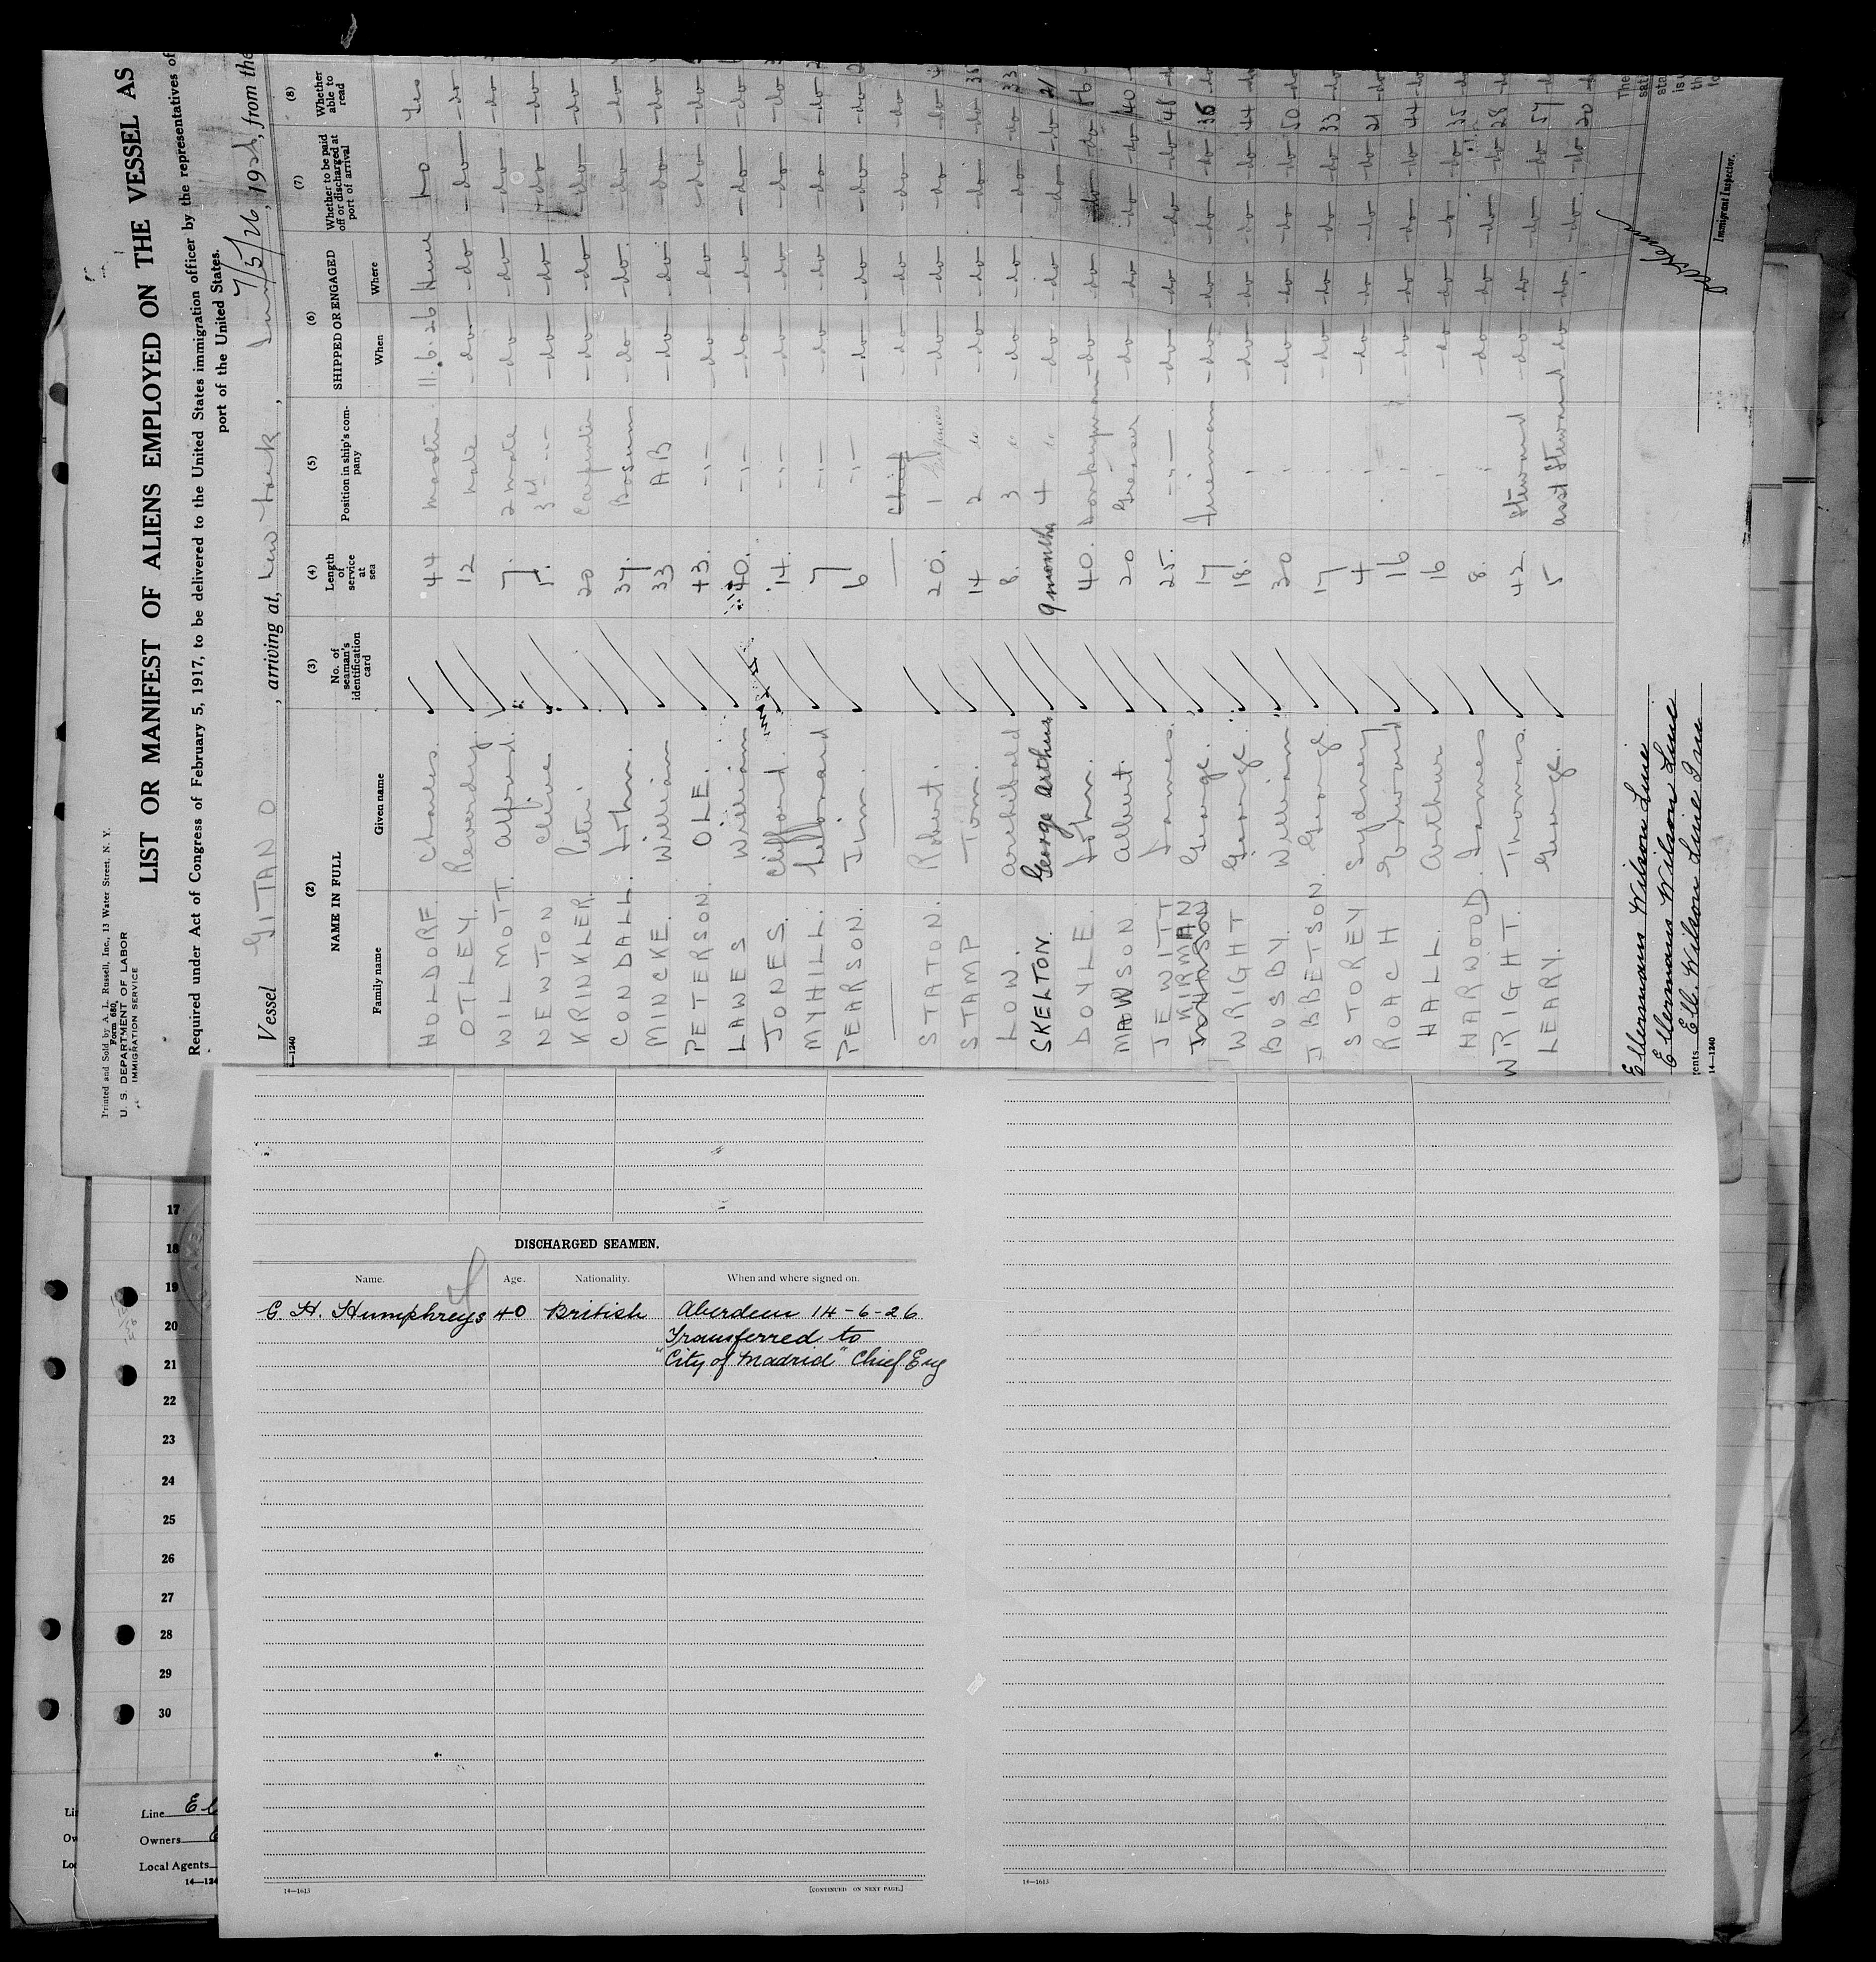 Printed and Sold by A. L. Russell, Inc., 13 Water Street, N. Y.
Form 680,
U. S. DEPARTMENT OF LABOR
IMMIGRATION SERVICE
LIST OR MANIFEST OF ALIENS EMPLOYED ON THE VESSEL AS
Required under Act of Congress of February 5, 1917, to be delivered to the United States immigration officer by the representatives of
port of the United States.
Vessel GITANO, arriving at, New York, 7/5/26, 192, from the
14—1240
(2) (3) (4) (5) (6) (7) (8)
NAME IN FULL No. of seaman's identification card Length of service at sea Position in ship's company SHIPPED OR ENGAGED Whether to be paid off or discharged at port of arrival Whether able to read
Family name Given name When Where
HOLDORF. Charles. 44 Master. 11.6.26 Hull No Yes
OTLEY. Reverdy. 12 Mate -do- -do- -do- -do-
WILMOTT. Alfred. 7. 2 mate -do- -do- -do- -do-
NEWTON Clive 3rd -"- -do- -do- -do- -do-
KRINKLER. Peter. 20 Carpenter -do- -do- -do- -do-
CONDALL. John. 37. Bosun -do- -do- -do- -do-
MINCKE. William 33 AB -do- -do- -do- -do-
PETERSON. OLE. 43. -"- -do- -do- -do- -do-
LAWES William 40. -"- -do- -do- -do- -do-
JONES. Clifford. 14. -"- -do- -do- -do- -do-
MYHILL. Leonard 7 -"- -do- -do- -do- -do-
PEARSON. Jim. 6 -"- -do- -do- -do- -do-
Chief -do- -do- -do- -do-
STATON. Robert. 20. 1 -do- -do- -do- -do-
STAMP Tom. 14 2 " -do- -do- -do- -do-
LOW. Archibald 8. 3 " -do- -do- -do- -do- 33
SKELTON. George Arthur. 9 months 4 " -do- -do- -do- -do- 21
DOYLE. John. 40. Donkeyman -do- -do- -do- -do- 56
MAWSON Albert. 20 Greaser -do- -do- -do- -do- 40
JEWITT James. 25. -"- -do- -do- -do- -do- 48
KIRMAN George. 17 Fireman -do- -do- -do- -do- 36
WRIGHT George. 18. " -do- -do- -do- -do- 44
BUSBY. William 30 " -do- -do- -do- -do- 50
IBBETSON. George. 17 " -do- -do- -do- -do- 33
STOREY Sydney 4 " -do- -do- -do- -do- 21
ROACH Edward 16 " -do- -do- -do- -do- 44
HALL. Arthur 16 " -do- -do- -do- -do- 35
HARWOOD. James 8. " -do- -do- -do- -do- 28
WRIGHT. Thomas. 42. Steward -do- -do- -do- -do- 57
LEARY. George. 5 asst Steward -do- -do- -do- -do- 20
Ellermans Wilson Line
Ellermans Wilson Line
Ell. Wilson Line Inc
14—1240
Immigrant Inspector.
17
18
19
20
21
22
23
24
25
26
27
28
29
30
Line
Owners
Local Agents
DISCHARGED SEAMEN.
Name. Age. Nationality. When and where signed on.
G. H. Humphreys 40 British Aberdeen 14-6-26
Transferred to
"City of Madrid" Chief Eng
14—1613 [CONTINUED ON NEXT PAGE.]
14—1613